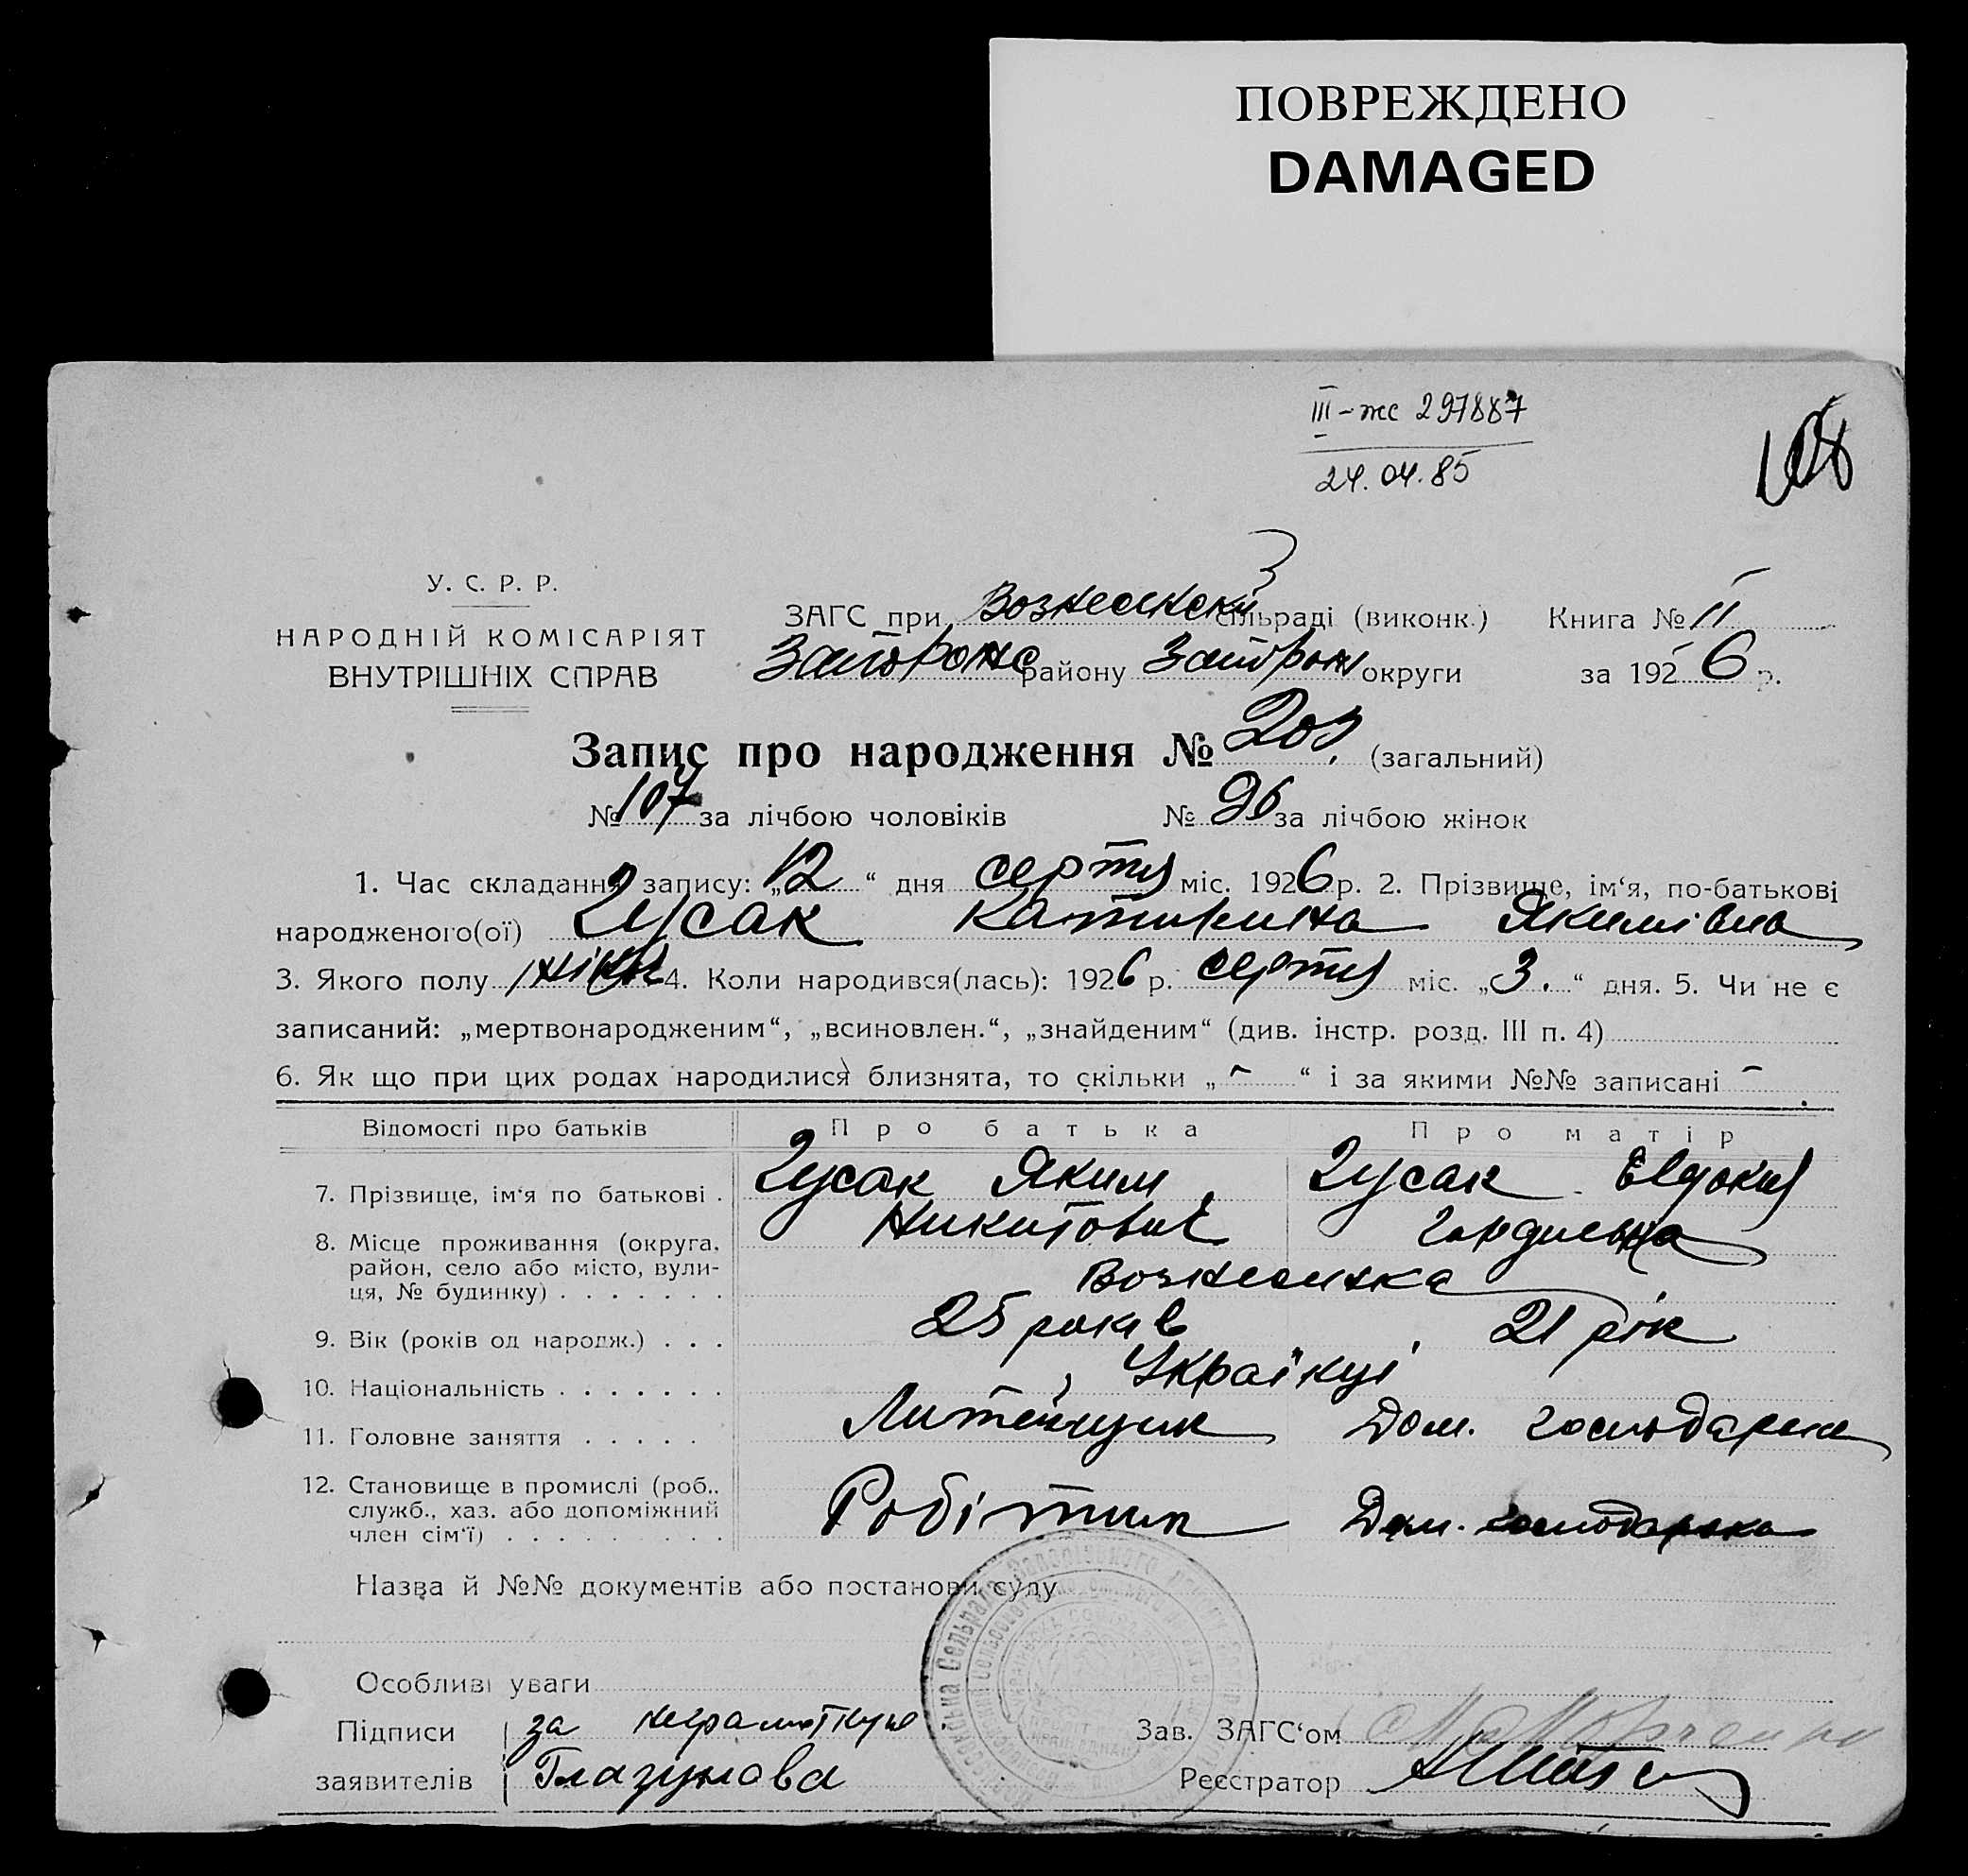 ПОВРЕЖДЕНО
DAMAGED
III-жс 297887
24.04.85
У. С. Р. Р.
НАРОДНІЙ КОМІСАРІЯТ
ВНУТРІШНІХ СПРАВ
ЗАГС при Вознесенскій сільраді (виконк.) Книга № II
Запорожс району Запорож округи за 1926 р.
Запис про народження № 203. (загальний)
№ 107 за лічбою чоловіків № 96 за лічбою жінок
1. Час складання запису: „12“ дня серпня міс. 1926 р. 2. Прізвище, ім‘я, по-батькові
народженого(ої) Гусак Катирина Якимівна
3. Якого полу жіноч 4. Коли народився(лась): 1926 р. серпня міс. „3.“ дня. 5. Чи не є
записаний: „мертвонародженим“, „всиновлен.“, „знайденим“ (див. інстр. розд. III п. 4)
6. Як що при цих родах народилися близнята, то скільки „-“ і за якими №№ записані -
Відомості про батьків Про батька Про матір
7. Прізвище, ім‘я по батькові . Гусак Яким Гусак Евдокия
Никитович Гордиевна
8. Місце проживання (округа, район, село або місто, вулиця, № будинку) . . . . . . . Вознесенка
9. Вік (років од народж.) . . . 25 років 21 рік
10. Національність . . . . . . . Українці
11. Головне заняття . . . . . Литейщик Дом. господарка
12. Становище в промислі (роб., служб., хаз. або допоміжний член сім‘ї) . . . . . . . . . Робітник Дом. господарка
Назва й №№ документів або постанови суду
Особливі уваги
Підписи за неграмотную Зав. ЗАГС‘ом
заявителів Глазунова Реєстратор